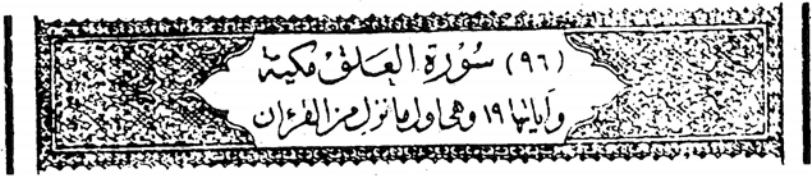 (٩٦) سُوْرَة العَلَقْ مَكيَّة
وَآيَاتهَا ١٩ وَهِىَ اول مَا نزل من القرآن